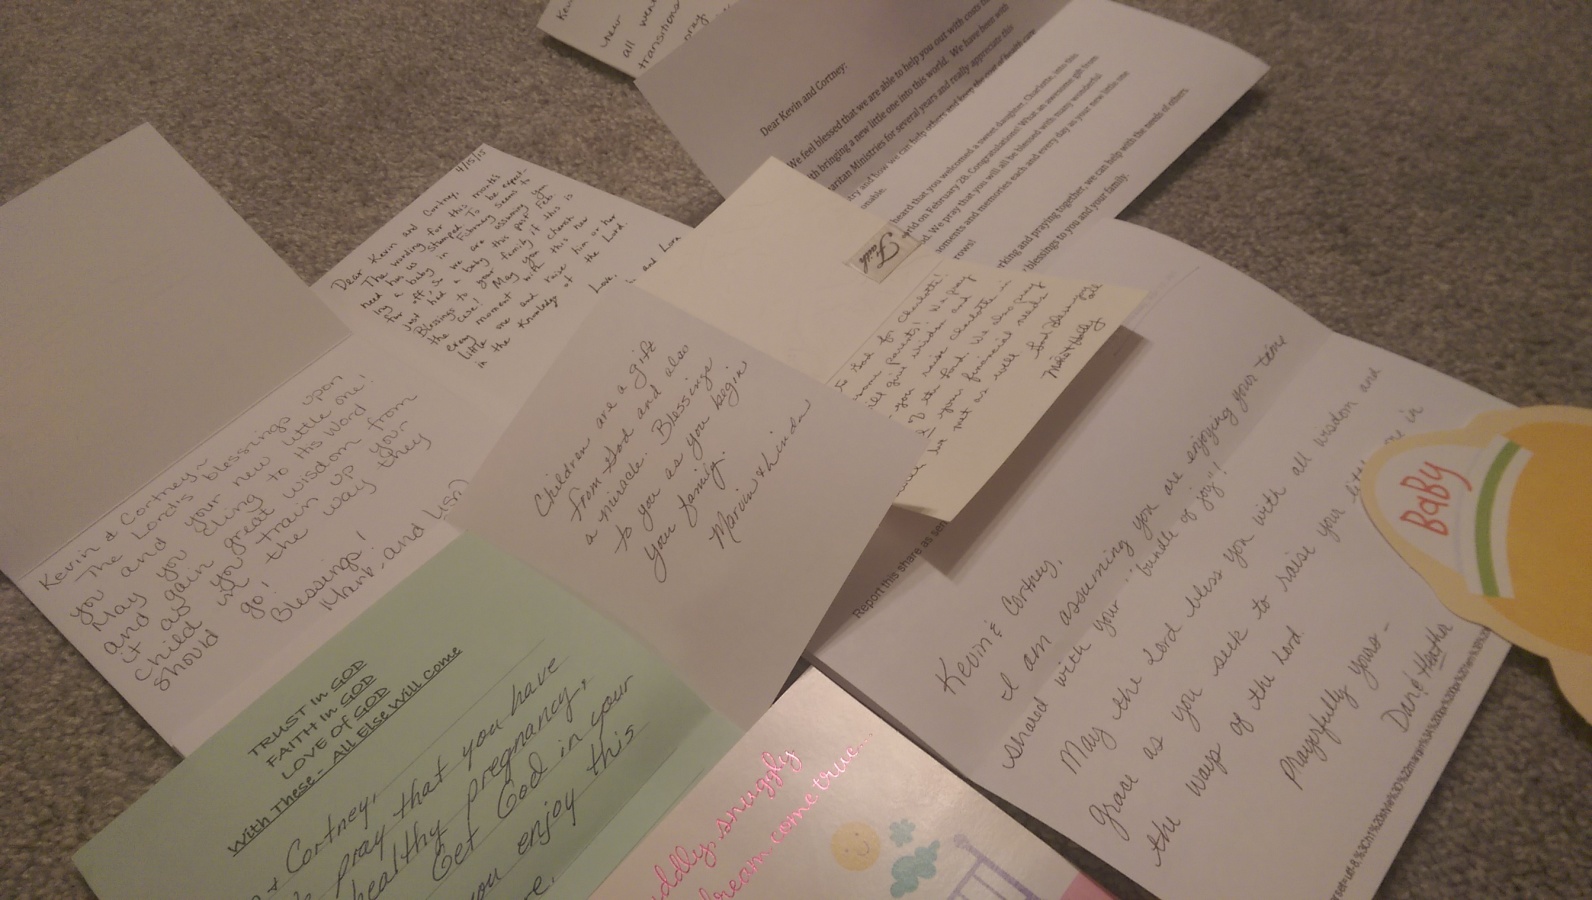 Ken
all were
transitions
pray
Dear Kevin and Cortney:
We feel blessed that we are able to help you out with costs
with bringing a new little one into this world. We have been with
Ministries for several years and really appreciate this
and how we can help others and
heard that you welcomed a sweet daughter, Charlotte, into this
on February 28. Congratulations! What an awesome gift from
We pray that you will all be blessed with many wonderful
moments and memories each and every day as your new little one
grows!
and praying together, we can help with the needs of others
blessings to you and your family.
4/15/15
Dear Kevin and Cortney,
The wording for this month's
need has us stumped. To be expect-
ing a baby in February seems to
far off, so we are assuming you
just had a baby this past Feb.
Blessings to your family if this is
the case! May you cherish
every moment with this new
little one and raise him or her
in the knowledge of the Lord
Love,
and Lora
Faith
God for Charlotte!
parents! We pray
give wisdom and
you raise Charlotte in
of the Lord. We also pray
your financial needs
met as well
God Bless you
Matt & Holly
Kevin & Cortney~
The Lord's blessings upon
you and your new little one!
May you cling to His Word
and gain great wisdom from
it as you train up your
child in the way they
should go!
Blessings!
Mark and Lisa
Children are a gift
from God and also
a miracle. Blessings
to you as you begin
your family.
Marvin & Linda
Report this share as sen
Kevin & Cortney,
I am assuming you are enjoying your time
shared with your "bundle of joy"!
May the Lord bless you with all wisdom and
Grace as you seek to raise your little one in
the ways of the Lord.
Prayerfully yours-
Dan & Heather
BaBy
TRUST in GOD
FAITH in GOD
LOVE of GOD
With These - All Else Will Come
& Cortney,
pray that you have
healthy pregnancy.
Get God in your
you enjoy this
snuggly
dream come true...